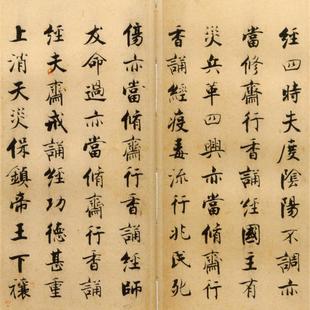 經四時失度陰陽不調亦
當修齋行香誦經國主有
災兵革四興亦當脩齋行
香誦經疫毒流行兆民死
傷亦當脩齋行香誦經師
友命過亦當脩齋行香誦
經夫齋戒誦經功德甚重
上消天災保鎮帝王下禳